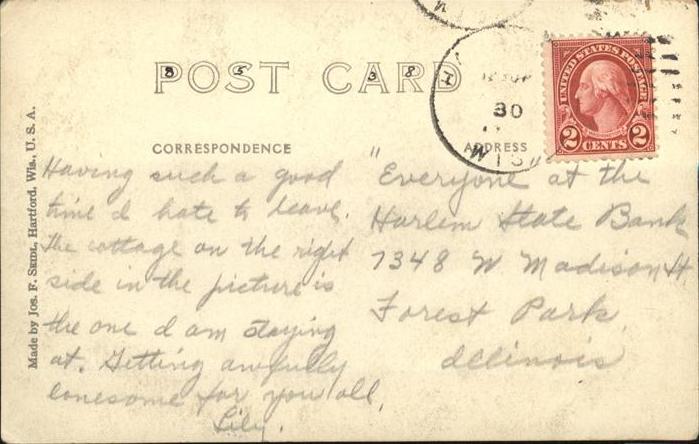 POST CARD
8 5 3 8
CORRESPONDENCE
ADDRESS
Made by Jos. F. Seidl, Hartford, Wis., U. S. A.
UNITED STATES POSTAGE
2 CENTS 2
30
WIS
Having such a good
time I hate to leave.
The cottage on the right
side in the picture is
the one I am staying
at. Getting awfully
lonesome for you all.
Lily.
"Everyone" at the
Harlem State Bank
7348 W Madison St.
Forest Park,
Illinois